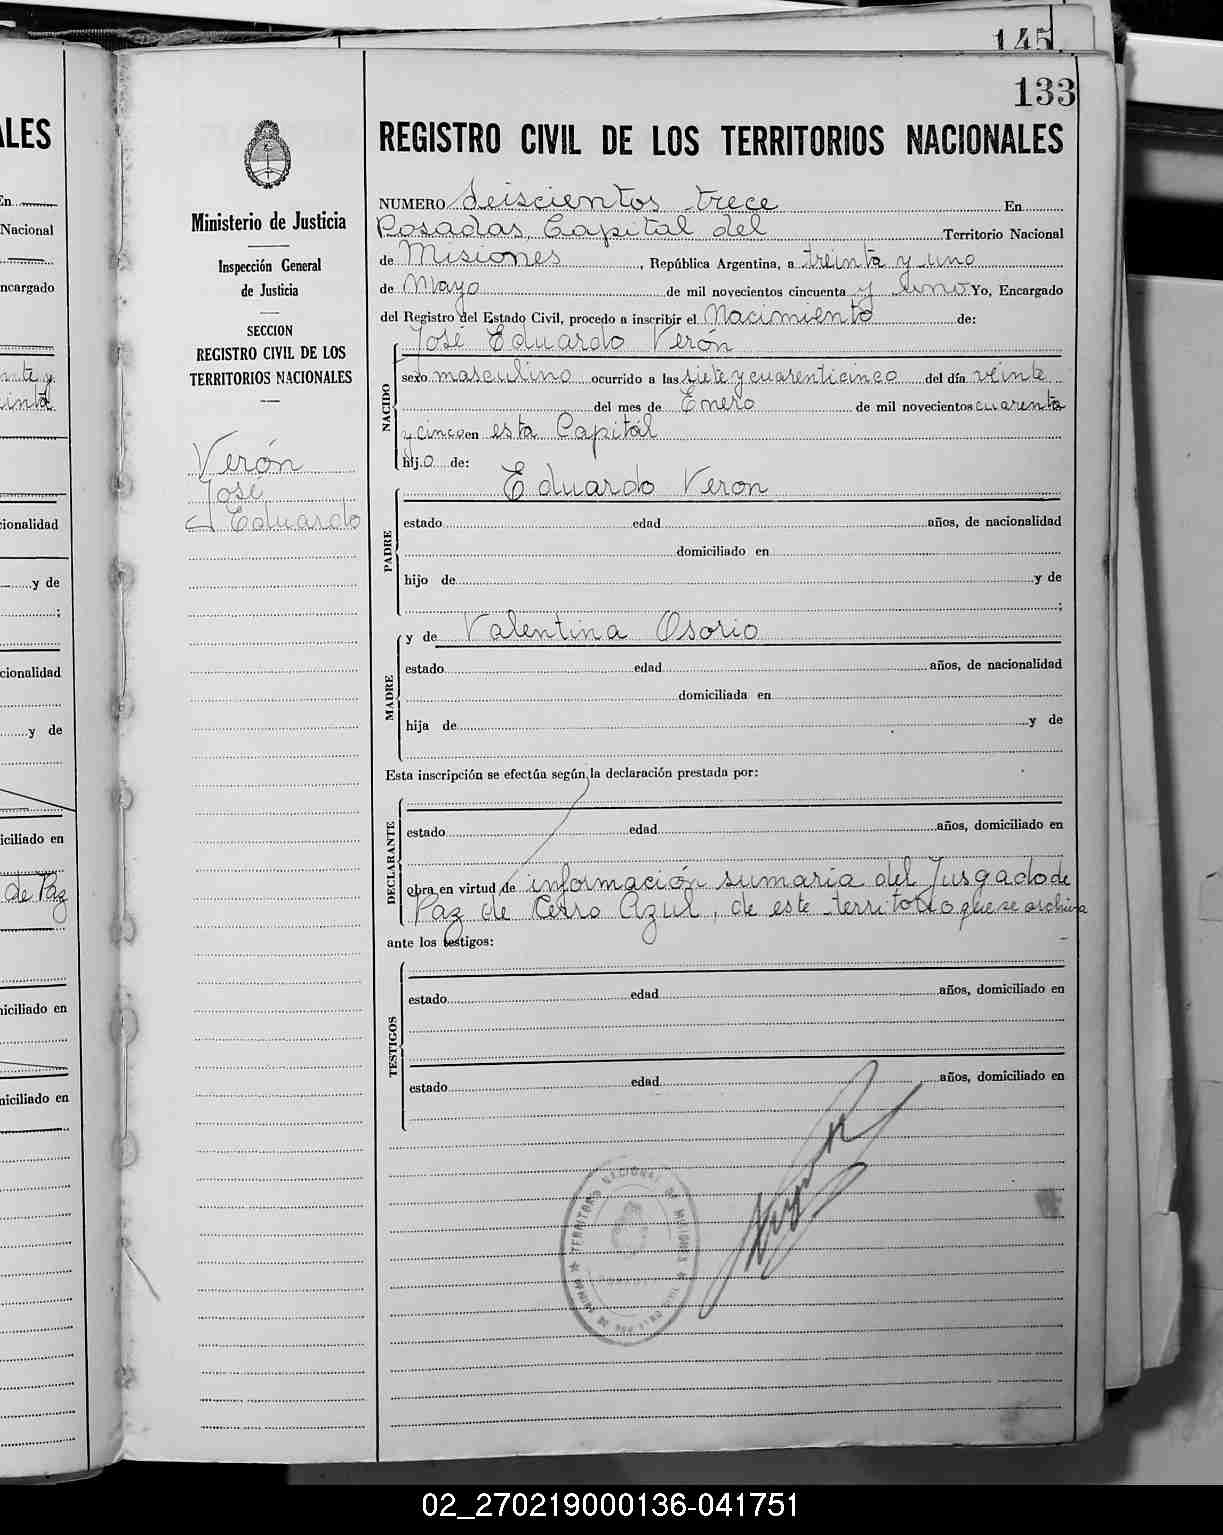 145
133
ALES
En
Nacional
ncargado
cionalidad
y de
;
cionalidad
y de
iciliado en
de Paz
niciliado en
niciliado en
Ministerio de Justicia
Inspección General
de Justicia
SECCION
REGISTRO CIVIL DE LOS
TERRITORIOS NACIONALES
Verón
José
Eduardo
REGISTRO CIVIL DE LOS TERRITORIOS NACIONALES
NUMERO Seiscientos trece En
Posadas, Capital del Territorio Nacional
de Misiones, República Argentina, a treinta y uno
de Mayo de mil novecientos cincuenta y uno Yo, Encargado
del Registro del Estado Civil, procedo a inscribir el Nacimiento de:
José Eduardo Verón
NACIDO
sexo masculino ocurrido a las siete y cuarenticinco del día veinte
del mes de Enero de mil novecientos cuarenta
y cinco en esta Capital
hijo de:
Eduardo Veron
PADRE
estado edad años, de nacionalidad
domiciliado en
hijo de y de
;
y de Valentina Osorio
MADRE
estado edad años, de nacionalidad
domiciliada en
hija de y de
Esta inscripción se efectúa según la declaración prestada por:
DECLARANTE
estado edad años, domiciliado en
obra en virtud de información sumaria del Jusgado de
Paz de Cerro Azul, de este territorio que se archiva
ante los testigos:
TESTIGOS
estado edad años, domiciliado en
estado edad años, domiciliado en
TERRITORIO NACIONAL DE MISIONES
02_270219000136-041751